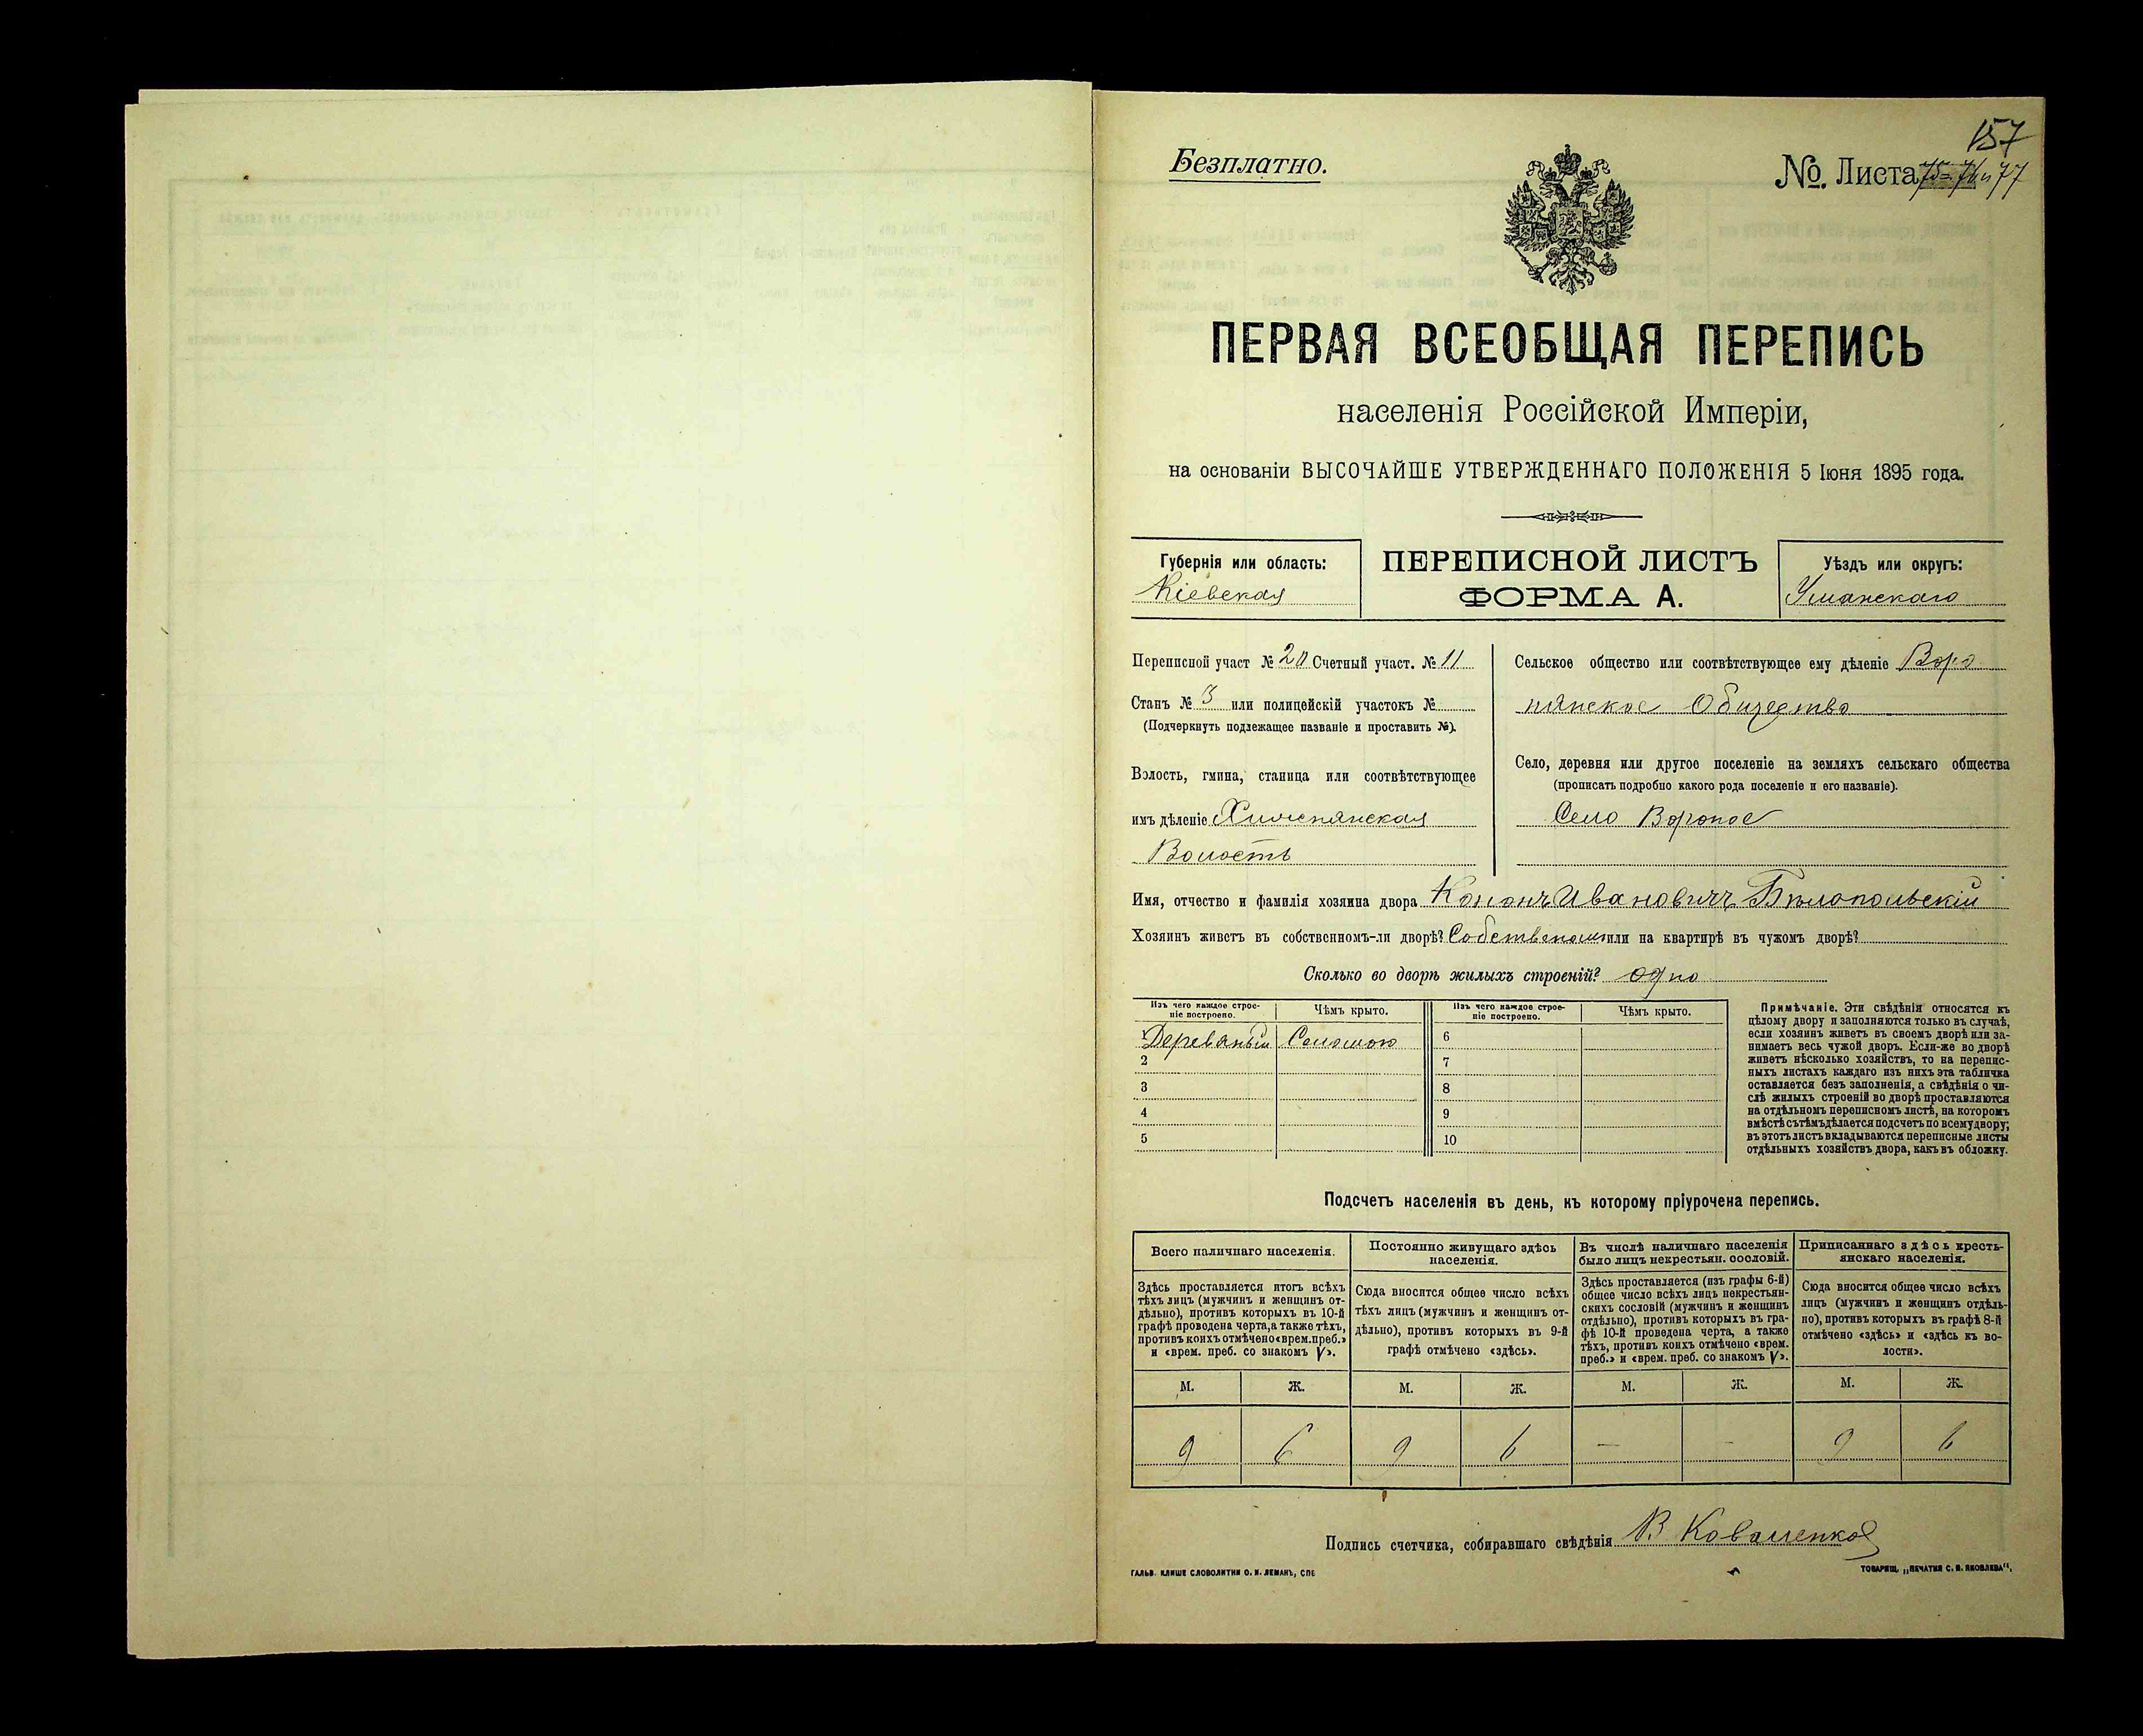 157
Безплатно.
№. Листа 75-76 и 77
ПЕРВАЯ ВСЕОБЩАЯ ПЕРЕПИСЬ
населенія Россійской Имперіи,
на основаніи ВЫСОЧАЙШЕ УТВЕРЖДЕННАГО ПОЛОЖЕНІЯ 5 Іюня 1895 года.
Губернія или область:
Кіевская
ПЕРЕПИСНОЙ ЛИСТЪ
ФОРМА А.
Уѣздъ или округъ:
Уманскаго
Переписной участ № 20 Счетный участ. № 11
Станъ № 3 или полицейскій участокъ №
(Подчеркнуть подлежащее названіе и проставить №).
Волость, гмина, станица или соотвѣтствующее
имъ дѣленіе
Волость
Сельское общество или соотвѣтствующее ему дѣленіе Воро
нянское Общество
Село, деревня или другое поселеніе на земляхъ сельскаго общества
(прописать подробно какого рода поселеніе и его названіе).
Село Вороное
Имя, отчество и фамилія хозяина двора Кононъ Ивановичъ Бѣлопольскій
Хозяинъ живетъ въ собственномъ-ли дворѣ? или на квартирѣ въ чужомъ дворѣ?
Сколько во дворѣ жилыхъ строеній? одно
Изъ чего каждое строе-
ніе построено.
Чѣмъ крыто.
Изъ чего каждое строе-
ніе построено.
Чѣмъ крыто.
1 Деревяный Соломою
2
3
4
5
6
7
8
9
10
Примѣчаніе. Эти свѣдѣнія относятся къ
цѣлому двору и заполняются только въ случаѣ,
если хозяинъ живетъ въ своемъ дворѣ или за-
нимаетъ весь чужой дворъ. Если-же во дворѣ
живетъ нѣсколько хозяйствъ, то на перепис-
ныхъ листахъ каждаго изъ нихъ эта табличка
оставляется безъ заполненія, а свѣдѣнія о чи-
слѣ жилыхъ строеній во дворѣ проставляются
на отдѣльномъ переписномъ листѣ, на которомъ
вмѣстѣ съ тѣмъ дѣлается подсчетъ по всему двору;
въ этотъ листъ вкладываются переписные листы
отдѣльныхъ хозяйствъ двора, какъ въ обложку.
Подсчетъ населенія въ день, къ которому пріурочена перепись.
Всего наличнаго населенія.
Здѣсь проставляется итогъ всѣхъ
тѣхъ лицъ (мужчинъ и женщинъ от-
дѣльно), противъ которыхъ въ 10-й
графѣ проведена черта, а также тѣхъ,
противъ коихъ отмѣчено «врем. преб.»
и «врем. преб. со знакомъ V».
Постоянно живущаго здѣсь
населенія.
Сюда вносится общее число всѣхъ
тѣхъ лицъ (мужчинъ и женщинъ от-
дѣльно), противъ которыхъ въ 9-й
графѣ отмѣчено «здѣсь».
Въ числѣ наличнаго населенія
было лицъ некрестьян. сословій.
Здѣсь проставляется (изъ графы 6-й)
общее число всѣхъ лицъ некрестьян-
скихъ сословій (мужчинъ и женщинъ
отдѣльно), противъ которыхъ въ гра-
фѣ 10-й проведена черта, а также
тѣхъ, противъ коихъ отмѣчено «врем.
преб.» и «врем. преб. со знакомъ V».
Приписаннаго здѣсь кресть-
янскаго населенія.
Сюда вносится общее число всѣхъ
лицъ (мужчинъ и женщинъ отдѣль-
но), противъ которыхъ въ графѣ 8-й
отмѣчено «здѣсь» и «здѣсь къ во-
лости».
М. Ж. М. Ж. М. Ж. М. Ж.
9 6 9 6 — — 9 6
Подпись счетчика, собиравшаго свѣдѣнія В Коваленко
ГАЛЬВ. КЛИШЕ СЛОВОЛИТНИ О. И. ЛЕМАНЪ, СПБ
ТОВАРИЩ. „ПЕЧАТНЯ С. П. ЯКОВЛЕВА“.